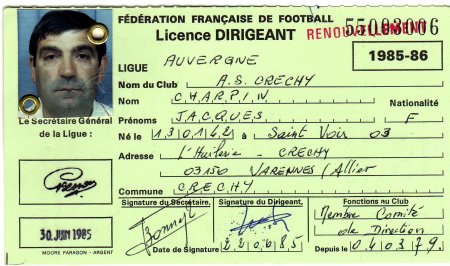 FÉDÉRATION FRANÇAISE DE FOOTBALL
Licence DIRIGEANT
55003006
RENOUVELLEMENT
1985-86
LIGUE AUVERGNE
Nom du Club A.S. CRECHY
Nom CHARPIN
Nationalité
Prénoms JACQUES F
Né le 130142 à Saint Voir 03
Adresse L'Huilerie - CRECHY
03150 VARENNES/Allier
Commune CRECHY
Le Secrétaire Général
de la Ligue :
30 JUIN 1985
MOORE PARAGON - ARGENT
Signature du Secrétaire,
Signature du Dirigeant,
Date de Signature 220685
Fonctions au Club
Membre Comité
de Direction
Depuis le 040379